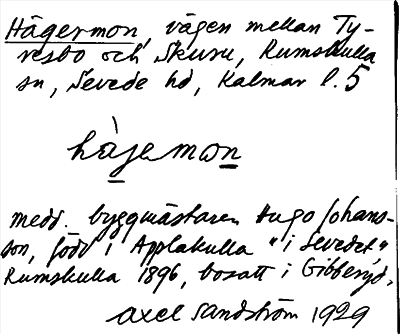 Hägermon, vägen mellan Ty-
resbo och Skuru, Rumskulla
sn, Sevede hd, Kalmar l. 5
hàjemon
medd. byggmästaren Hugo Johans-
son, född i Applakulla "i Sevedet"
Rumskulla 1896, bosatt i Gibberyd,
Axel Sandström 1929